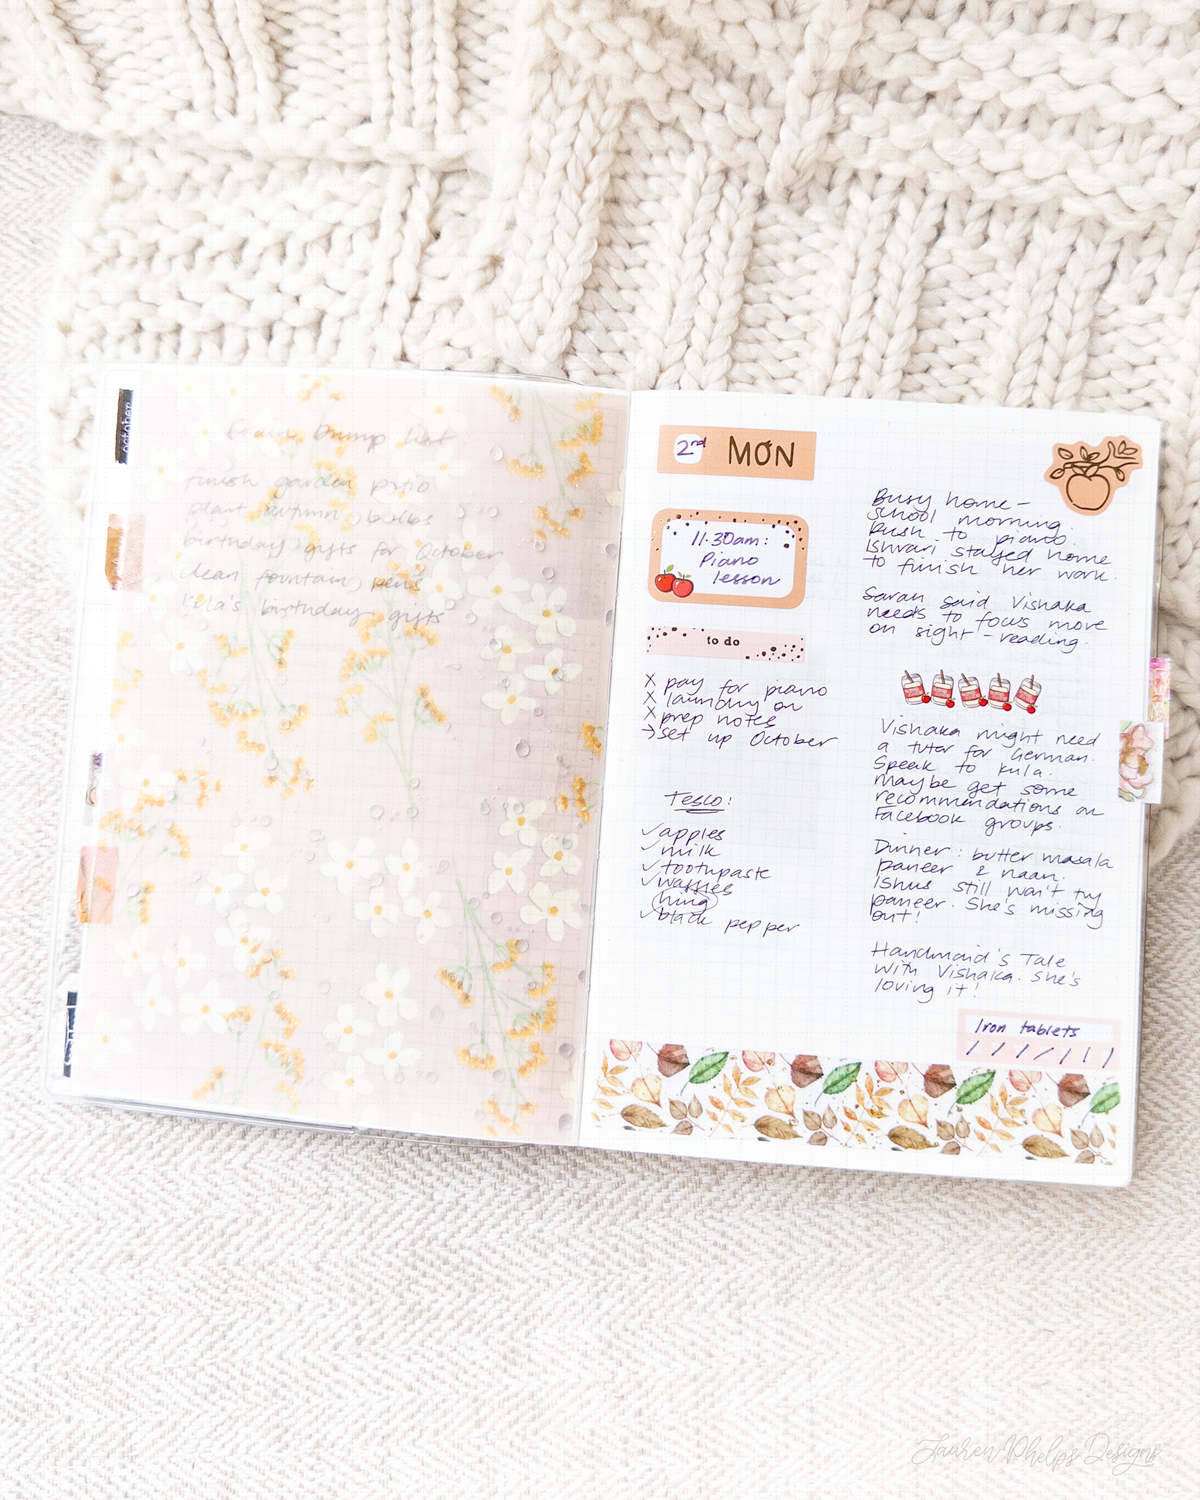 october
Brain Dump list
finish garden patio
plant autumn bulbs
birthday gifts for October
clean fountain pens
Lila's birthday gifts
2nd MON
11.30am:
Piano
lesson
to do
X pay for piano
X laundry on
X prep notes
→ set up October
Tesco:
✓ apples
✓ milk
✓ toothpaste
✓ waffles
hing
✓ black pepper
Busy home-
school morning.
Rush to piano.
Ishvari stayed home
to finish her work.
Sarah said Vishaka
needs to focus more
on sight-reading.
Vishaka might need
a tutor for German.
Speak to Kula.
maybe get some
recommendations on
Facebook groups.
Dinner: butter masala
paneer & naan.
Ishus still won't try
paneer. She's missing
out!
Handmaid's Tale
with Vishaka. She's
loving it!
Iron tablets
/ / / / / / /
Lauren Phelps Designs